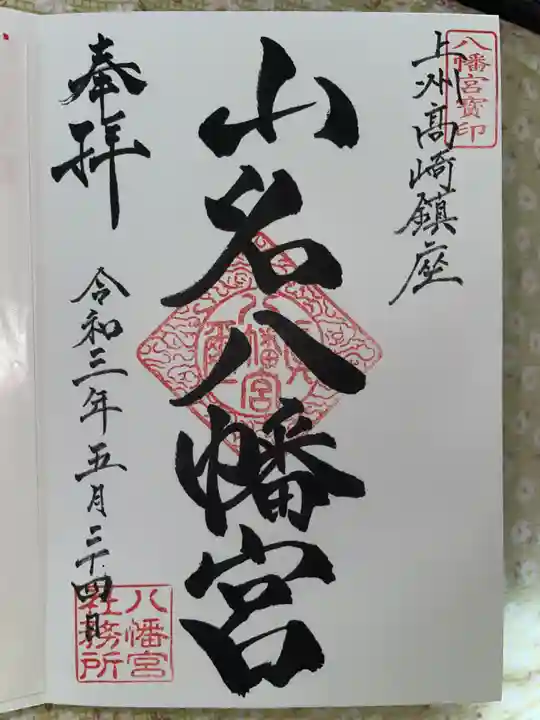 八幡宮寳印
上州高崎鎮座
山名八幡宮
八幡宮
奉拝
令和三年五月二十四日
八幡宮
社務所